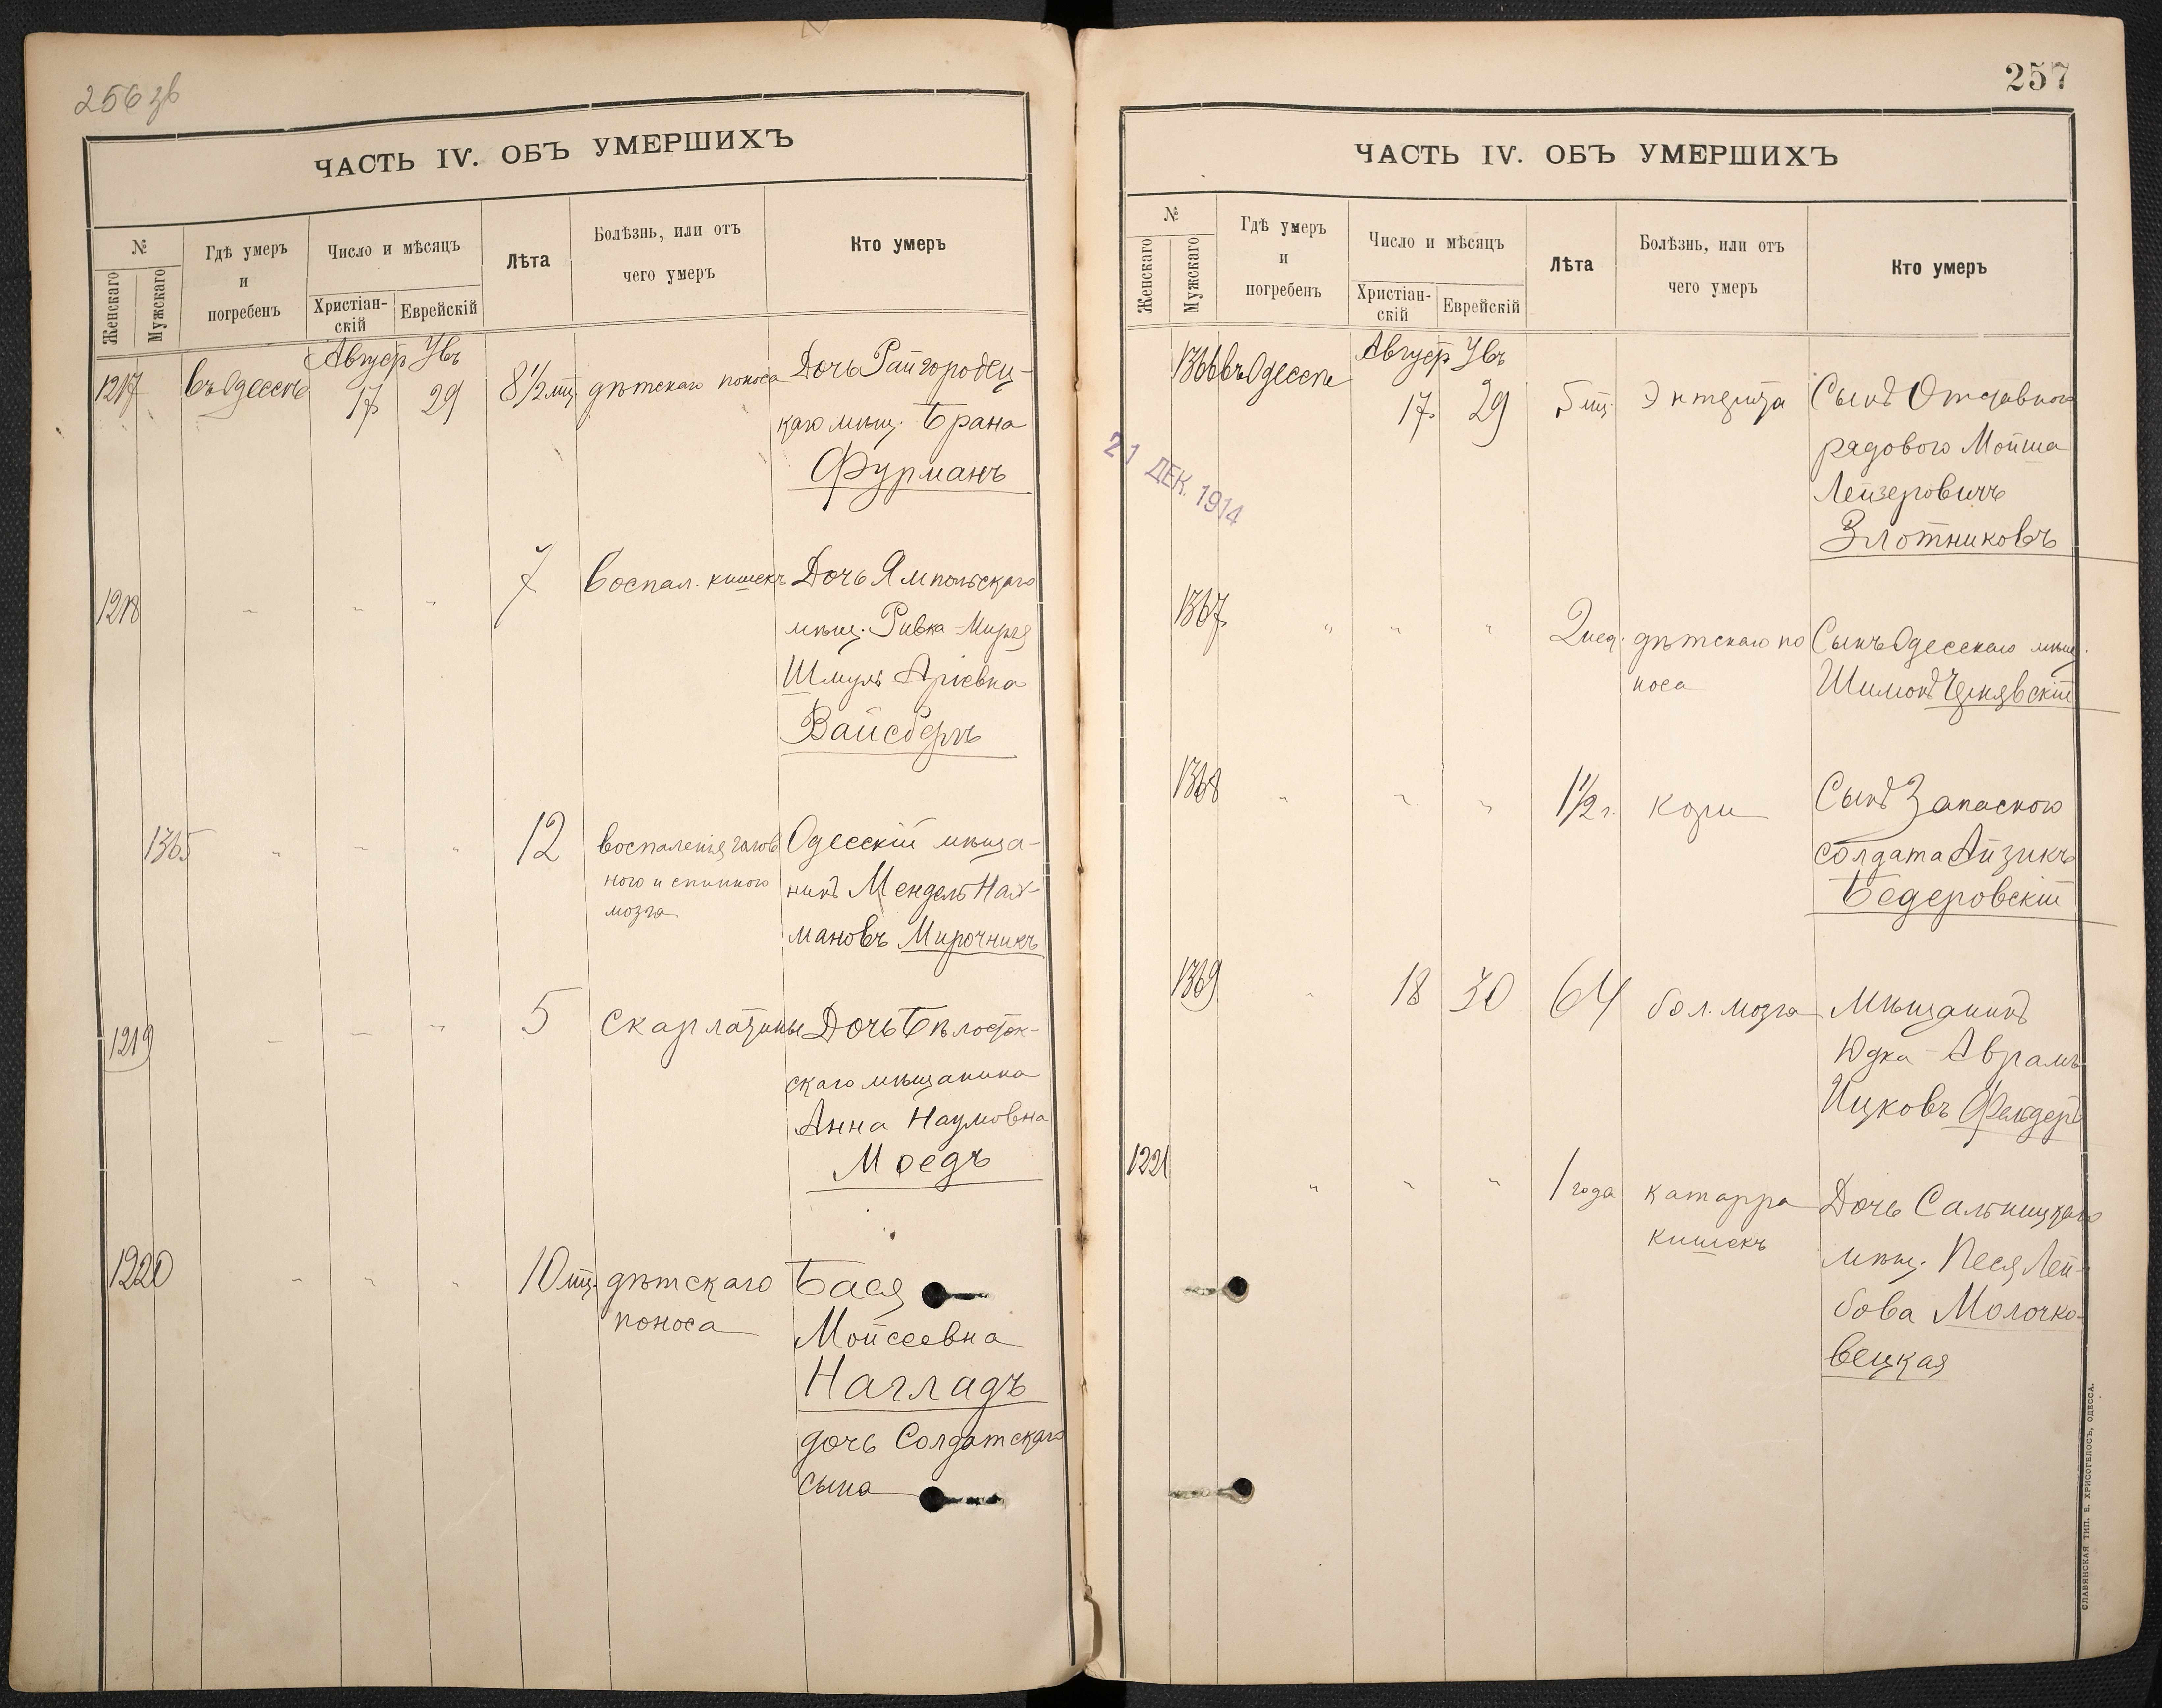 256 зв
ЧАСТЬ IV. ОБЪ УМЕРШИХЪ
№
Женскаго
Мужскаго
Гдѣ умеръ
и
погребенъ
Число и мѣсяцъ
Христіан-
скій
Еврейскій
Лѣта
Болѣзнь, или отъ
чего умеръ
Кто умеръ
Август Увъ
1217 въ Одессѣ 17 29 8 1/2 мц. дѣтскаго поноса Дочь Райгородец-
каго мѣщ. Брана
Фурманъ
1218 " " " 7 воспал. кишекъ Дочь Ямпольскаго
мѣщ. Ривка-Миря
Шмуль Аріевна
Вайсберъ
1365 " " " 12 воспаленія голов Одесскій мѣща-
ного и спинного нинъ Мендель Нах-
мозга мановъ Мирочникъ
1219 " " " 5 скарлатины Дочь Бѣлосток-
скаго мѣщанина
Анна Наумовна
Моедъ
1220 " " " 10 мц. дѣтскаго Бася
поноса Мойсеевна
Нагладъ
дочь Солдатскаго
сына
257
ЧАСТЬ IV. ОБЪ УМЕРШИХЪ
№
Женскаго
Мужскаго
Гдѣ умеръ
и
погребенъ
Число и мѣсяцъ
Христіан-
скій
Еврейскій
Лѣта
Болѣзнь, или отъ
чего умеръ
Кто умеръ
Август Увъ
1366 въ Одессѣ 17 29 5 мц. Энтерита Сынъ Отставного
рядового Мойша
Лейзеровичъ
Злотниковъ
21 ДЕК. 1914
1367 " " " 2 нед. дѣтскаго по Сынъ Одесскаго мѣщ.
носа Шимонъ Чернявскій
1368 " " " 1 1/2 г. кори Сынъ Запасного
солдата Айзикъ
Бедеровскій
1369 " 18 30 64 бол. мозга Мѣщанинъ
Юдка-Аврамъ
Ицковъ Фельдеръ
1221 " " " 1 года катарра Дочь Сальницкаго
кишекъ мѣщ. Песя Лей-
бова Молочко-
вецкая
СЛАВЯНСКАЯ ТИП. Е. ХРИСОГЕЛОСЪ, ОДЕССА.